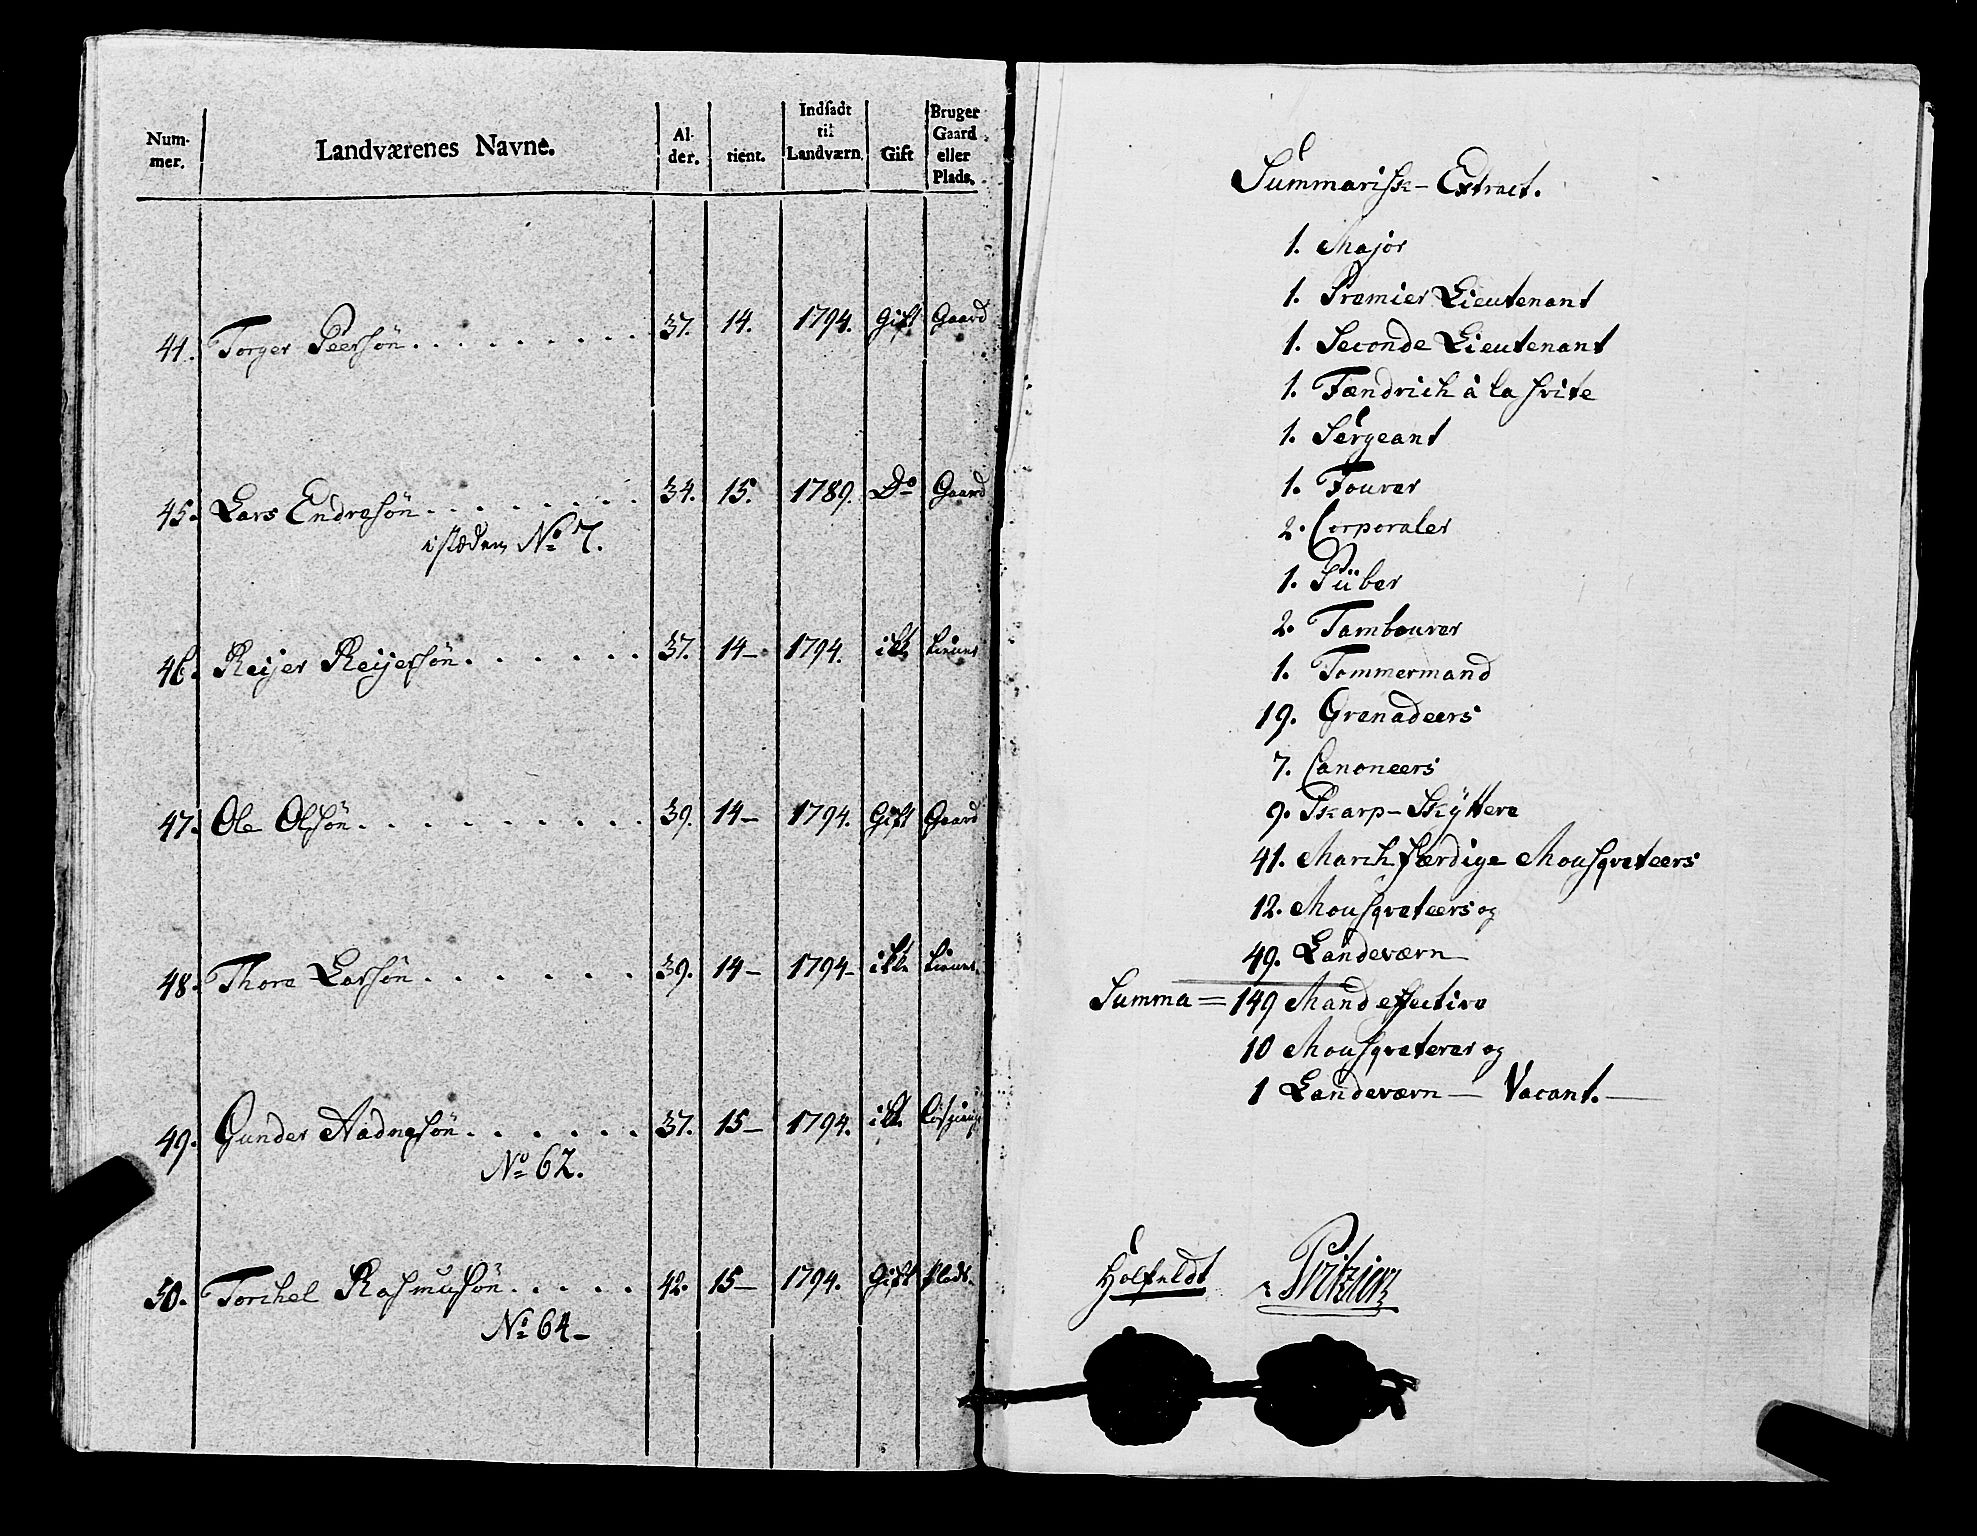 Num-
mer.
Landværenes Navne.
Al-
der.
tient.
Indsadt
til
Landværn.
Gift
Bruger
Gaard
eller
Plads.
44. Torger Peersøn . . . . . . . . . 37. 14. 1794. Gift Gaard
45. Lars Endresøn . . . . . . . 34. 15. 1789. Do Gaard
istæden No 7.
46. Reijer Reijersøn . . . . . . 37. 14- 1794. ikke
47. Ole Olsøn . . . . . . . . . 39. 14- 1794. Gift Gaard
48. Thore Larsøn . . . . . . 39. 14- 1794- ikke
49. Gunder Aadnesøn . . . . . . 37. 15- 1794. ikke
No 62.
50. Torchel Rasmusøn . . . . 42. 15- 1794. Gift Plads.
No 64-
Summarisk- Extract.
1. Major
1. Premier Lieutenant
1. Seconde Lieutenant
1. Fændrich à la svite
1. Sergeant
1. Fourer
2. Corporaler
1. Piiber
2. Tambourer
1. Tømmermand
19. Grenadeers
7. Canoneers
9. Skarp-Skyttere
41. March færdige Mousqveteers
12. Mousqveteers og
49. Landeværn
Summa = 149 Mand effective
10 Mousqveterer og
1 Landeværn - Vacant. -
Holfeldt